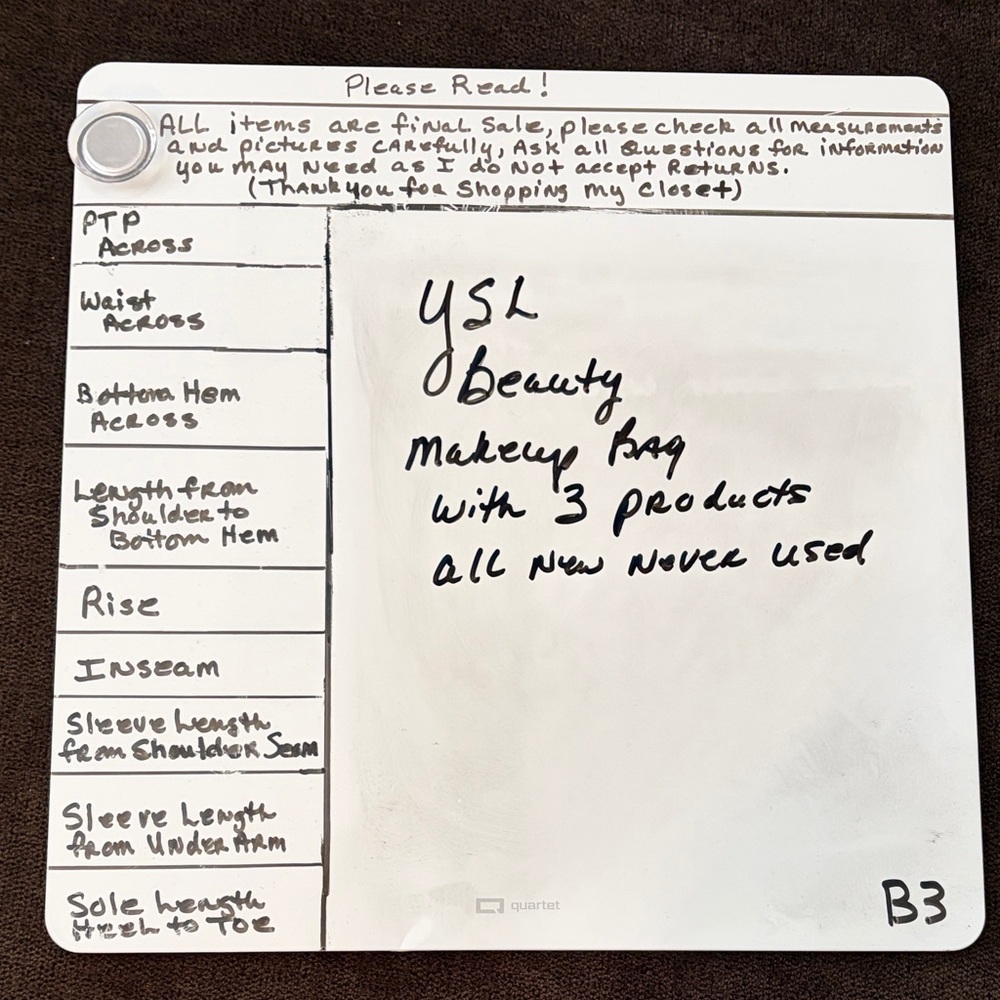 Please Read!
ALL items are final Sale, please check all measurements
and pictures carefully, Ask all Questions for information
you may Need as I do Not accept Returns.
(Thank you for Shopping my Closet)
PTP
Across
Waist
Across
Bottom Hem
Across
Length from
Shoulder to
Bottom Hem
Rise
Inseam
Sleeve Length
from Shoulder Seam
Sleeve Length
from Under Arm
Sole Length
Heel to Toe
YSL
Beauty
Makeup Bag
with 3 products
all New Never used
quartet
B3